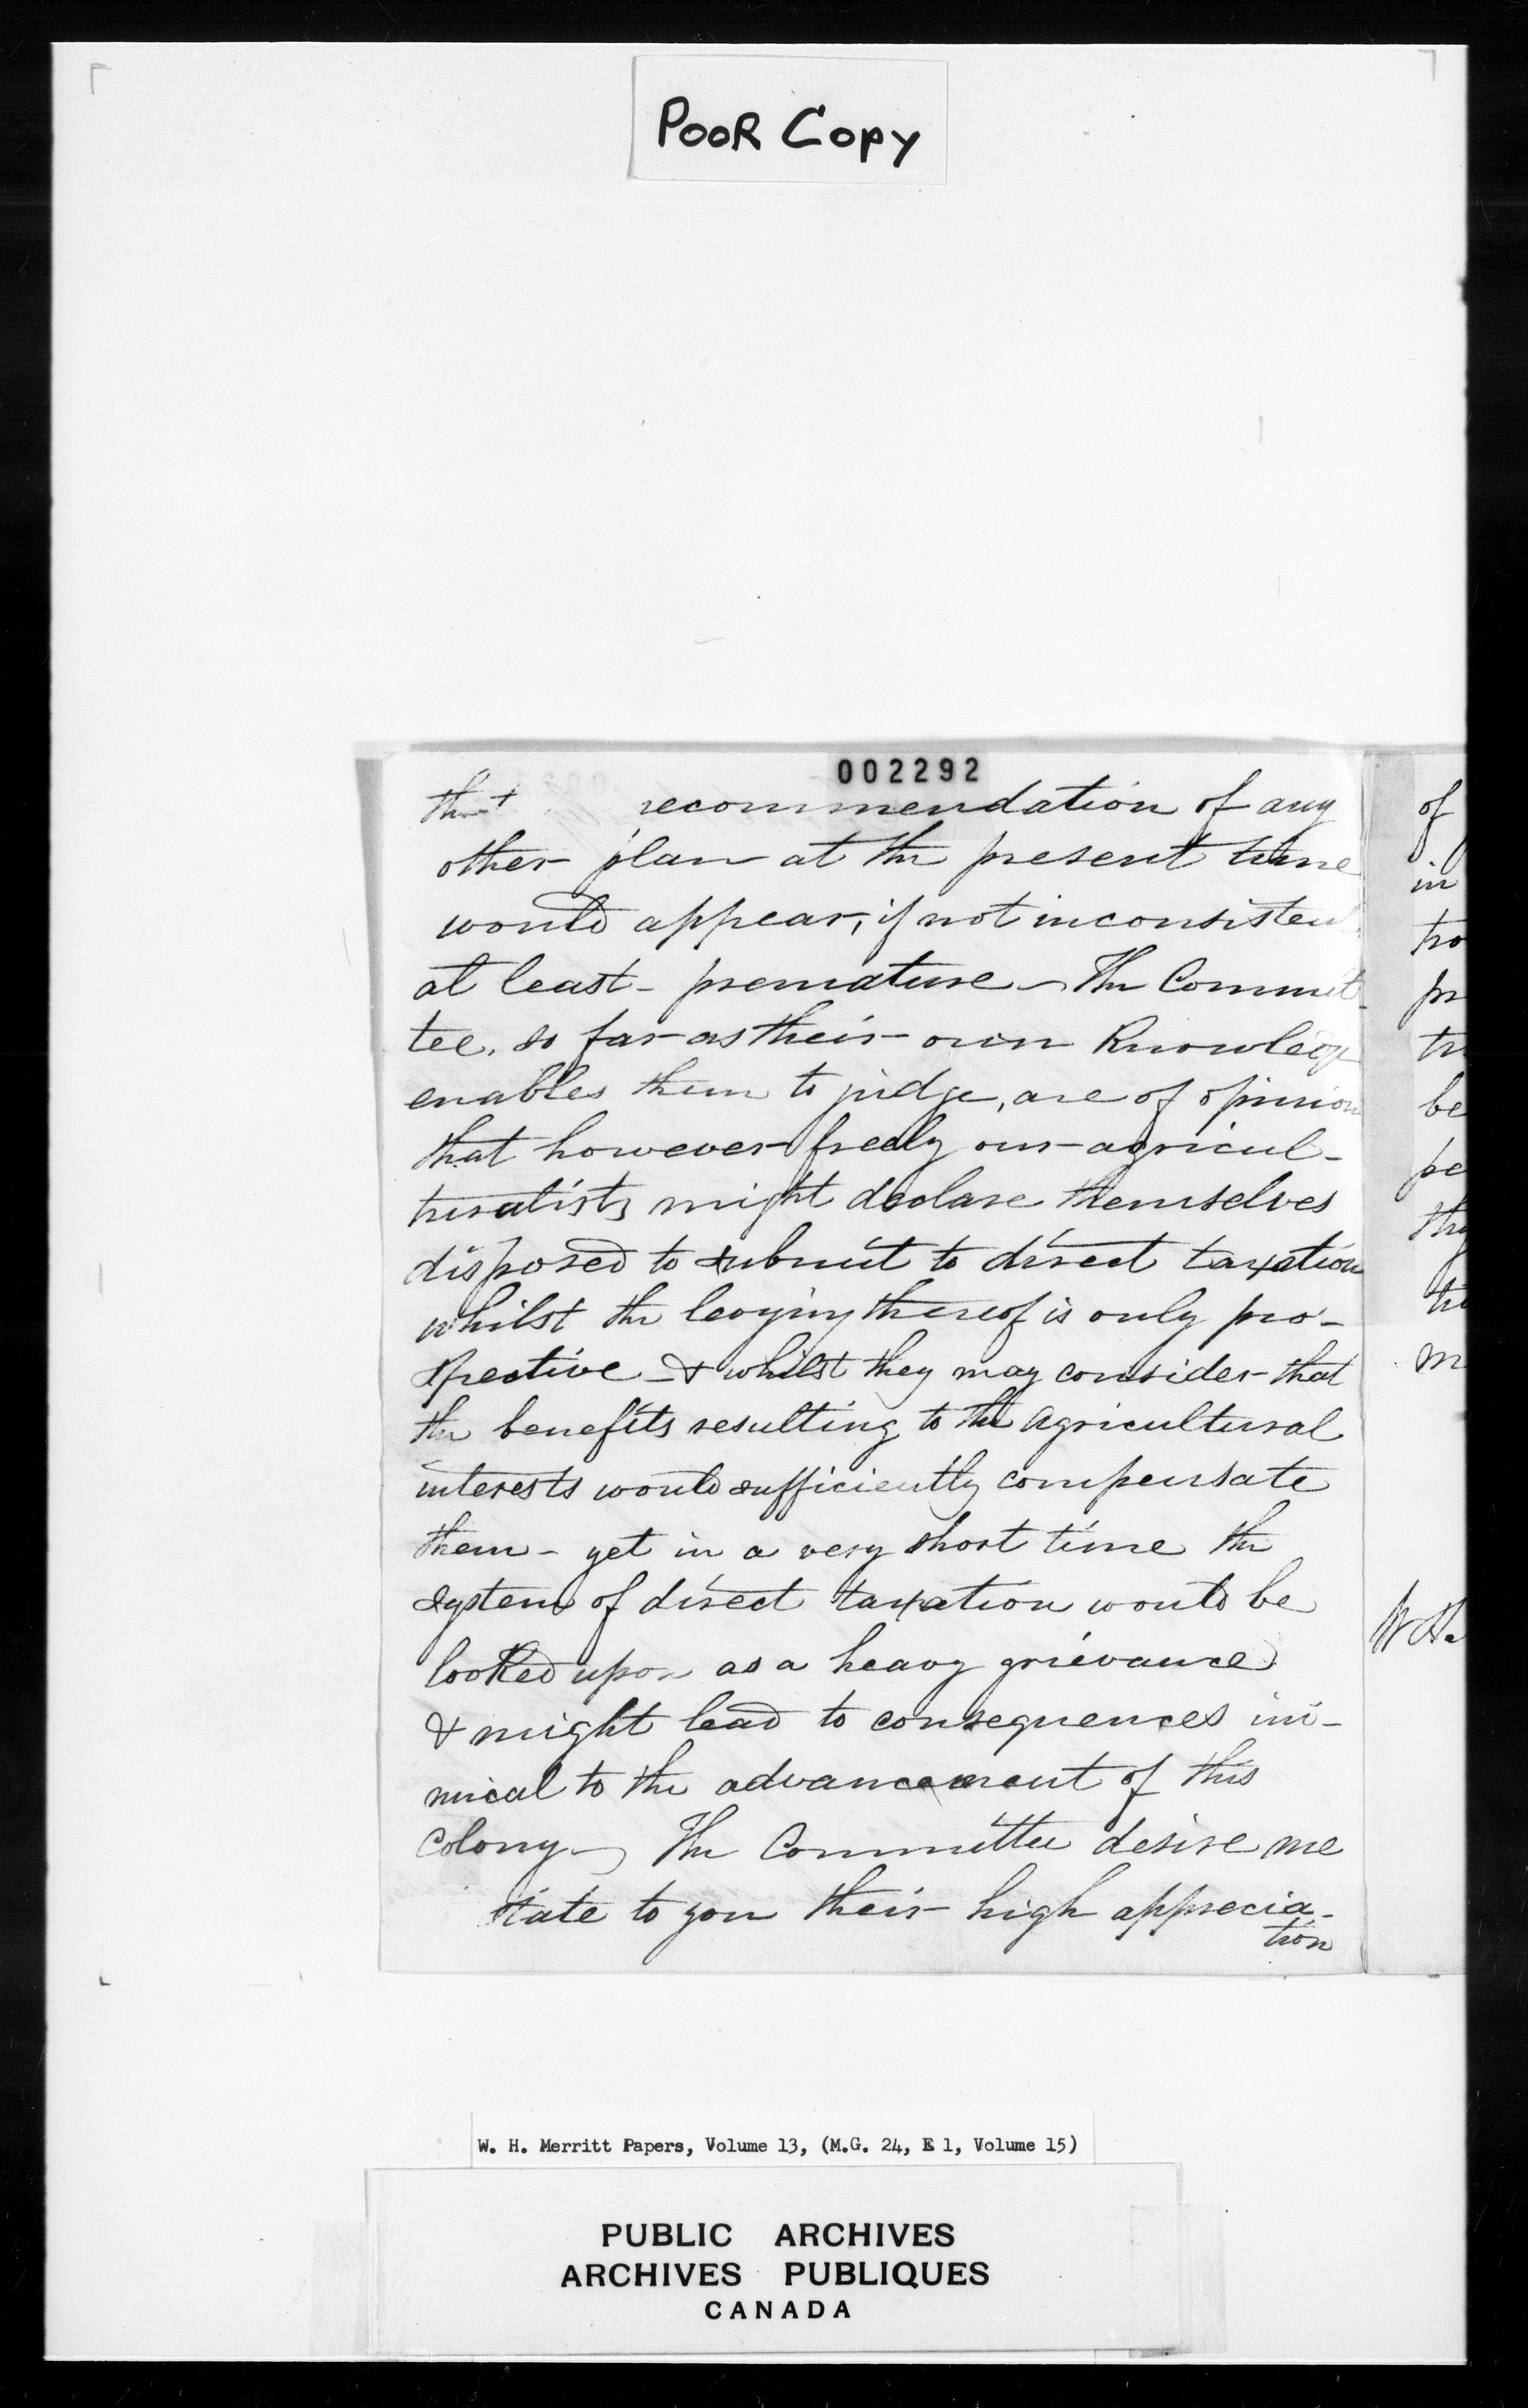 POOR Copy
002292
that recommendation of any
other plan at the present time
would appear, if not inconsistent
at least - premature - The Commit-
tee, so far as their own Knowledge
enables them to judge, are of opinion
that however freely our agricul-
turalists might declare themselves
disposed to submit to direct taxation
whilst the levying thereof is only pro-
spective - & whilst they may consider that
the benefits resulting to the agricultural
interests would sufficiently compensate
them - yet in a very short time the
system of direct taxation would be
looked upon as a heavy grievance
& might lead to consequences ini-
mical to the advancement of this
Colony - The Committee desire me
state to you their high apprecia-
tion
of
in
tro
pr
tr
be
pe
the
tri
m
W. H. Merritt Papers, Volume 13, (M.G. 24, E 1, Volume 15)
PUBLIC ARCHIVES
ARCHIVES PUBLIQUES
CANADA